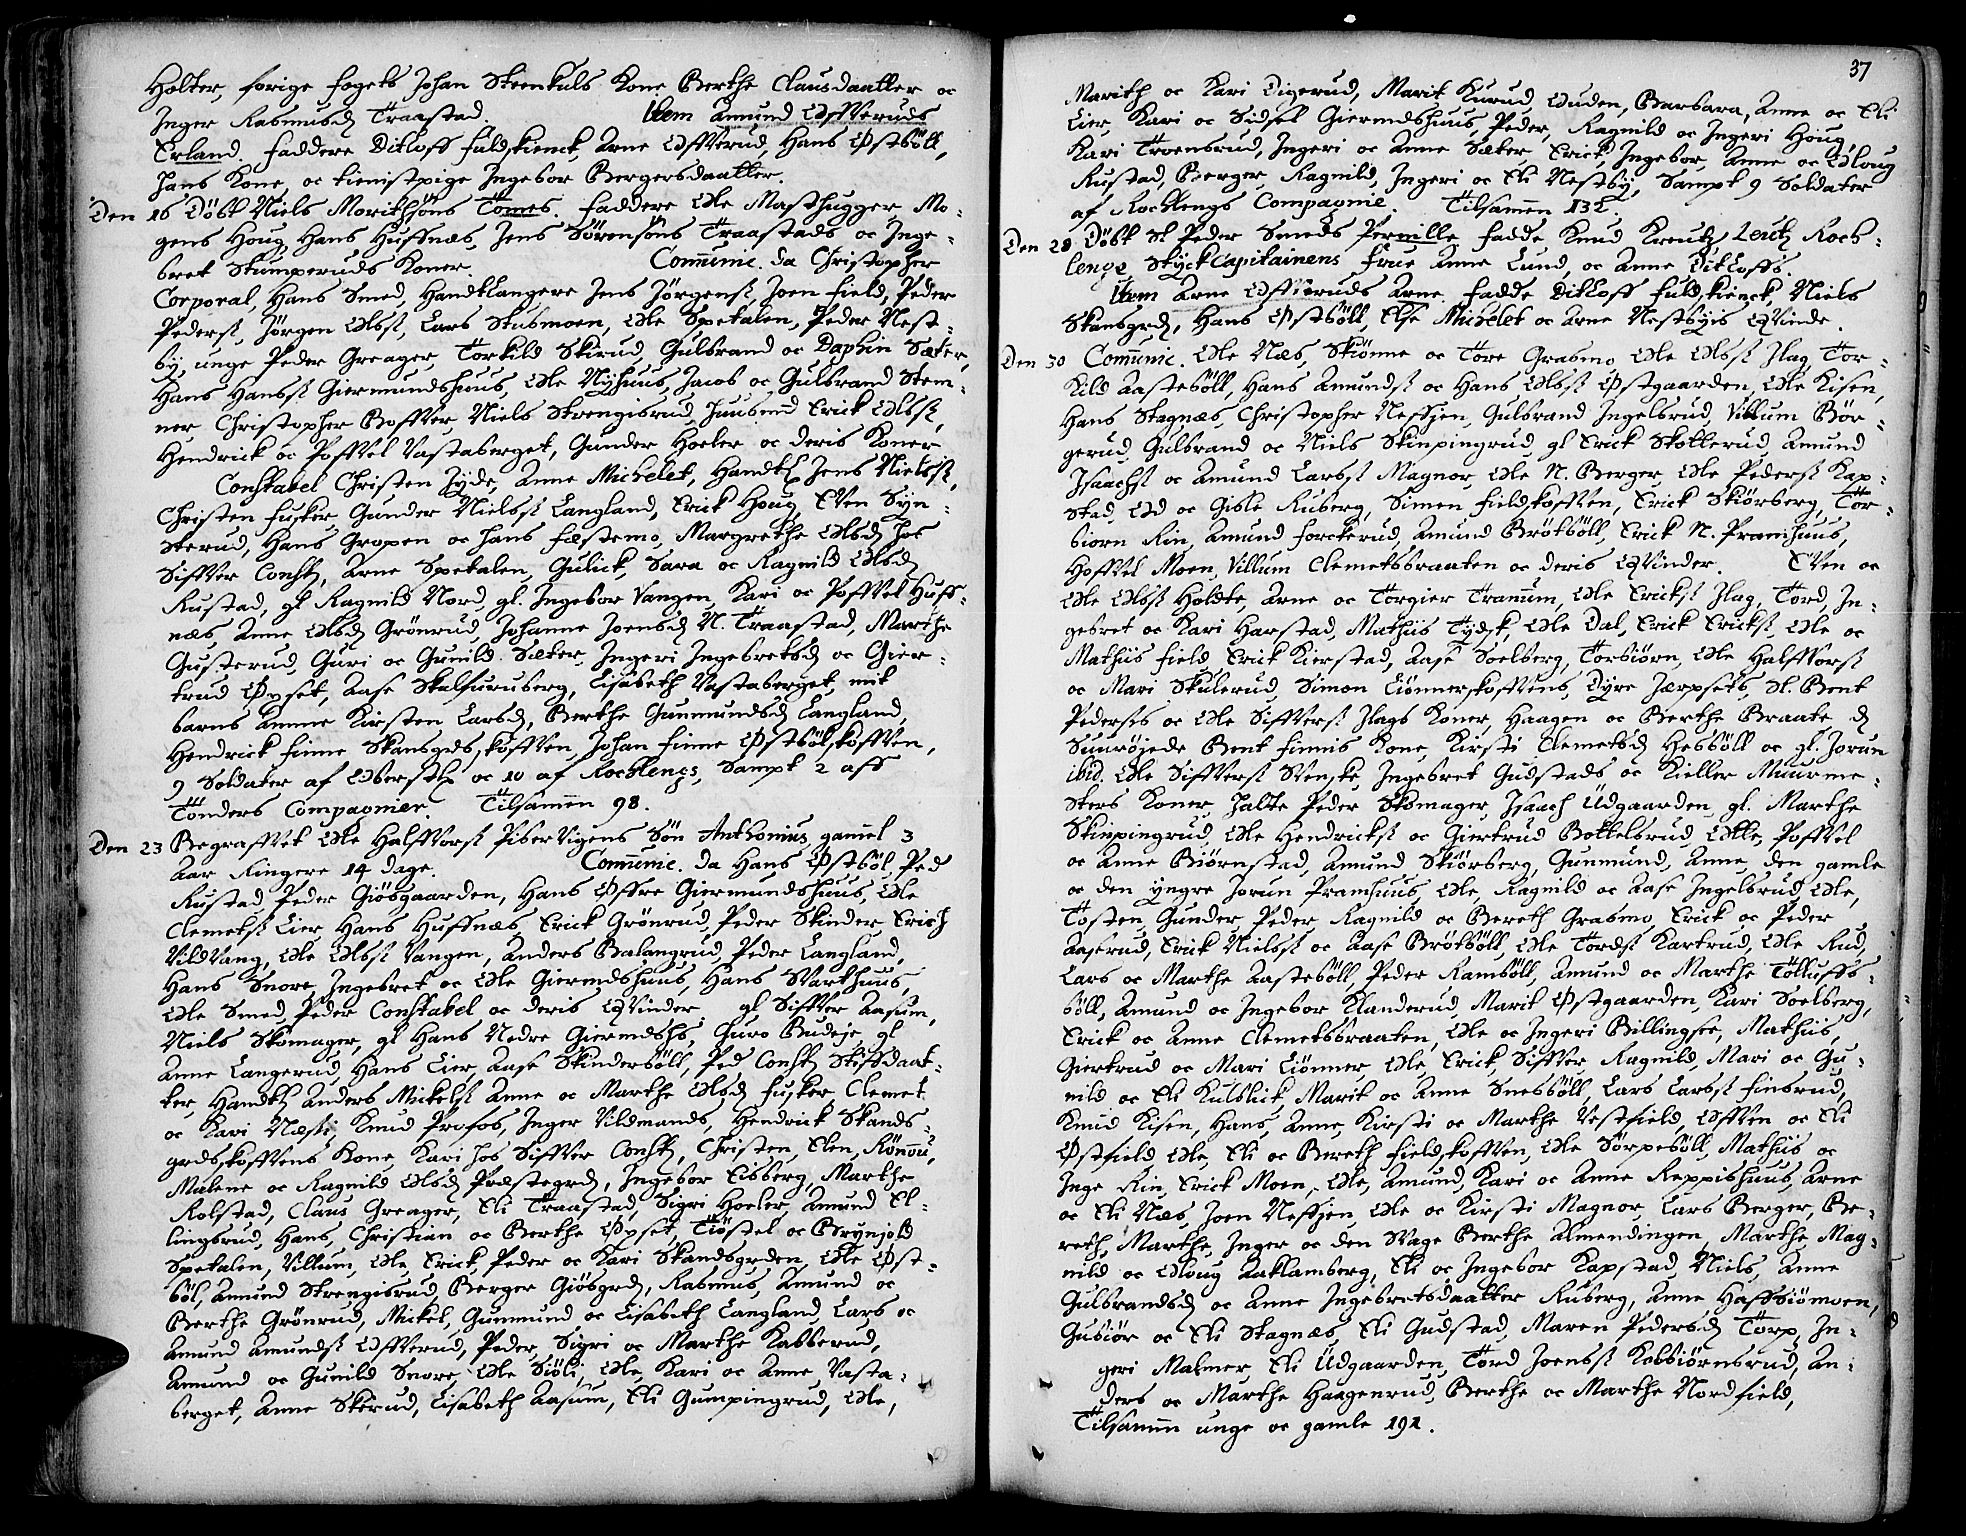 Holter, forige fogets Johan Steenkuls Kone Berthe Clausdaatter oc
Inger Rasmusd Traastad. Item Amund Offveruds
Erland. Faddere Ditloff Fuldskienck, Arne Offverud, Hans Østböll,
Hans Kone, oc tienistpige Ingebor Bergersdaatter.
Den 16 Döbt Niels Morithsöns Tomes. Faddere Ole Masthugger, Mo-
gens Houg, Hans Huffnæs, Jens Sörensöns Traastads oc Inge-
bret Skumperuds Koner. Communic. da Christopher
Corporal, Hans Smed, Handtlangere Jens Jörgenst, Joen Field, Peder
Pederst, Jörgen Olsst, Lars Stusmoen, Ole Spetalen, Peder Nest-
by, unge Peder Greager, Torkild Skirud, Gulbrand oc Daphin Sæter,
Hans Hanssst Giermundshuus, Ole Nyhuus, Jacob oc Gulbrand Stem-
ner Christopher Boffver, Niels Strengisrud, Huusmd Erick Olsst,
Hendrick oc Poffvel Vastaberget, Gunder Hoeler oc deris Koner
Constabel Christen Jyde, Anne Michelet, Handtl Jens Nielsst,
Christen Fusker, Gunder Nielsst Langland, Erick Houg, Even Syn-
sterud, Hans Gropen oc Hans Fæstemo, Margrethe Olsd hos
Siffver Const, Arne Spetalen, Gulick, Sara oc Ragnild Olsd
Rustad, gl Ragnild Nord, gl. Ingebor Vangen, Kari oc Poffvel Huff-
næs, Anne Olsd Grönrud, Johanne Joensd N. Traastad, Marthe
Gusterud, Guri oc Gunild Sæter, Ingeri Ingebretsd oc Gier-
trud Øyset, Aase Skalfuruberg, Lisabeth Vastaberget, mit
barns Amme Kirsten Larsd, Berthe Gunmundsd Langland,
Hendrick Finne Skansgrds skoffven, Johan Finne Østbölskoffven,
9 Soldater af Oberstl oc 10 af Rochlengs, Sampt 2 aff
Tönders Compagnier. Tilsamen 98.
Den 23 Begraffvet Ole Halffvorst Pibervigens Sön Anthonius, gamel 3
Aar Ringere 14 dage. Communic. da Hans Østböl, Ped
Rustad, Peder Giösgaarden, Hans Öffre Giermundshuus, Ole
Clemetst Lier, Hans Huffnæs, Erick Grönrud, Peder Skinder, Erich
Vildvang, Ole Olsst Vangen, Anders Balangrud, Peder Langland,
Hans Snore, Ingebret oc Ole Giermdshuus, Hans Svarthuus,
Ole Smed, Peder Constabel oc deris Qvinder. gl Siffver Aasum,
Niels Skomager, gl Hans Nedre Giermdshs, Guro Budeje, gl
Anne Langerud, Hans Lier, Aase Skinderböll, Ped Const Stiffdaat-
ter, Handtl Anders Mickelst, Anne oc Marthe Olsd Fusker, Clemet
oc Kari Næste, Knud Profos, Inger Vildmands, Hendrick Skands-
grdsskoffvens Kone, Kari hos Siffver Const, Christen, Elen, Rönnou,
Malene oc Ragnild Olsd Præstegrd, Ingebor Eisberg, Marthe
Rolstad, Claus Greager, Eli Traastad, Sigri Hoeler, Amund El-
lingsrud, Hans, Christian oc Berthe Øyset, Tiöstel oc Brynjold
Spetalen, Villum, Ole, Erick, Peder oc Kari Skandsgrden, Ole Øst-
böl, Amund Strengisrud, Berger Giösgrd, Rasmus, Amund oc
Berthe Grönrud, Mickel, Gunmund oc Lisabeth Langland, Lars oc
Amund Amundst Offverud, Peder, Sigri oc Marthe Kabberud,
Amund oc Gunild Snore, Ole Siöli, Ole, Kari oc Anne Vasta-
berget, Anne Skerud, Lisabeth Aasum, Eli Gumpingrud, Ole,
37
Marith oc Kari Digerud, Marit Kurud, Ouden, Barbara, Anne oc Eli
Lier, Kari oc Sidsel Giermdshuus, Peder, Ragnild oc Ingeri Houg,
Kari Troensrud, Ingeri oc Anne Sæter, Erick, Ingebor, Anne oc Oloug
Rustad, Berger, Ragnild, Ingeri oc Eli Nestby, Sampt 9 Soldater
af Rochlengs Compagnie. Tilsamen 132.
Den 28 Döbt Sl Peder Smeds Pernille. Fadde, Knud Kreutz, Leut Roch-
lenge, Skyck Capitainens Frue Anne Lund, oc Anne Ditloffs.
Item Arne Offveruds Arne. Fadde Ditloff Fuldskienck, Niels
Skansgrd, Hans Østböll, Else Michelet oc Arne Nestbyis Qvinde.
Den 30 Comunic. Ole Næs, Skiönne oc Tore Grasmo, Ole Olsst Flag, Tor-
kild Aasteböll, Hans Amundst oc Hans Olsst Østgaarden, Ole Kisen,
Hans Stagnæs, Christopher Neffsjen, Gulbrand Ingelsrud, Villum Bör-
gerud, Gulbrand oc Niels Skinpingrud, gl Erick Skotterud, Amund
Isaachst oc Amund Larsst Magnor, Ole N. Berger, Ole Pederst Kap-
stad, Od oc Gisle Ruberg, Simen Fieldskoffven, Erick Skiörberg, Tor-
biorn Rin, Amund Forckerud, Amund Brötböll, Erick N. Pramhuus,
Hoffvel Moen, Villum Clemetsbraaten oc deris Qvinder. Even oc
Ole Olsst Holdte, Arne oc Torgier Tranum, Ole Erickst Flag, Tord, In-
gebret oc Kari Harstad, Mathiis Tydsk, Ole Dal, Erick Erickst, Ole oc
Mathiis Field, Erick Kierstad, Aase Soelberg, Torbiörn, Ole Halffvorst
oc Mari Skulerud, Simon Liönnerskoffvens, Dyre Jærpsets, Sl. Bent
Pedersts oc Ole Siffverst Flags Koner, Haagen oc Berthe Braate, d
Suurøjede Bent Finnis Kone, Kirsti Clemetsd Hesböll oc gl. Jorun
ibid. Ole Siffverst Svenske, Ingebret Gudstads oc Kieller Muurme-
sters Koner, halte Peder Skomager, Isaach Üdgaarden, gl. Marthe
Skinpingrud, Ole Hendrickst oc Giertrud Bottelsrud, Otte, Poffvel
oc Anne Biörnstad, Amund Skiörberg, Gunmund, Anne, den gamle
oc den yngre Jorun Pramhuus, Ole, Ragnild oc Aase Ingelsrud, Ole,
Tosten, Gunder, Peder, Ragnild oc Bereth Grasmo, Erick oc Peder
Aaserud, Erick Nielsst oc Aase Brötböll, Ole Tordst Kartrud, Ole Rud,
Lars oc Marthe Aasteböll, Peder Ramböll, Amund oc Marthe Tolluffs-
böll, Amund oc Ingebor Klanderud, Marit Østgaarden, Kari Soelberg,
Erick oc Anne Clemetsbraaten, Ole oc Ingeri Billingsee, Mathiis,
Giertrud oc Mari Liönner, Ole, Erick, Siffver, Ragnild, Mari oc Gu-
nild oc Eli Kulblick, Marit oc Anne Snesböll, Lars Larsst Finsrud,
Knud Kisen, Hans, Anne, Kirsti oc Marthe Vestfield, Offven oc Eli
Østfield, Ole, Eli oc Bereth Fieldskoffven, Ole Sörpeböll, Mathiis oc
Inge Rin, Erick Moen, Ole, Amund, Kari oc Anne Reppishuus, Arne
oc Eli Næs, Joen Neffsjen, Ole oc Kirsti Magnor, Lars Berger, Be-
reth, Marthe, Inger oc den Svage Berthe Almendingen, Marthe, Mag-
nild oc Oloug Aaklamberg, Eli oc Ingebor Kapstad, Niels, Anne
Gulbrandsd oc Anne Ingebretsdaatter Ruberg, Anne Haffsiömoen,
Gubiör oc Eli Stagnæs, Eli Gudstad, Maren Pedersd Torp, In-
geri Malmer, Eli Üdgaarden, Tord Joensst Kobbiörnsrud, An-
ders oc Marthe Haagenrud, Berthe oc Marthe Nordfield,
Tilsamn unge oc gamle 191.